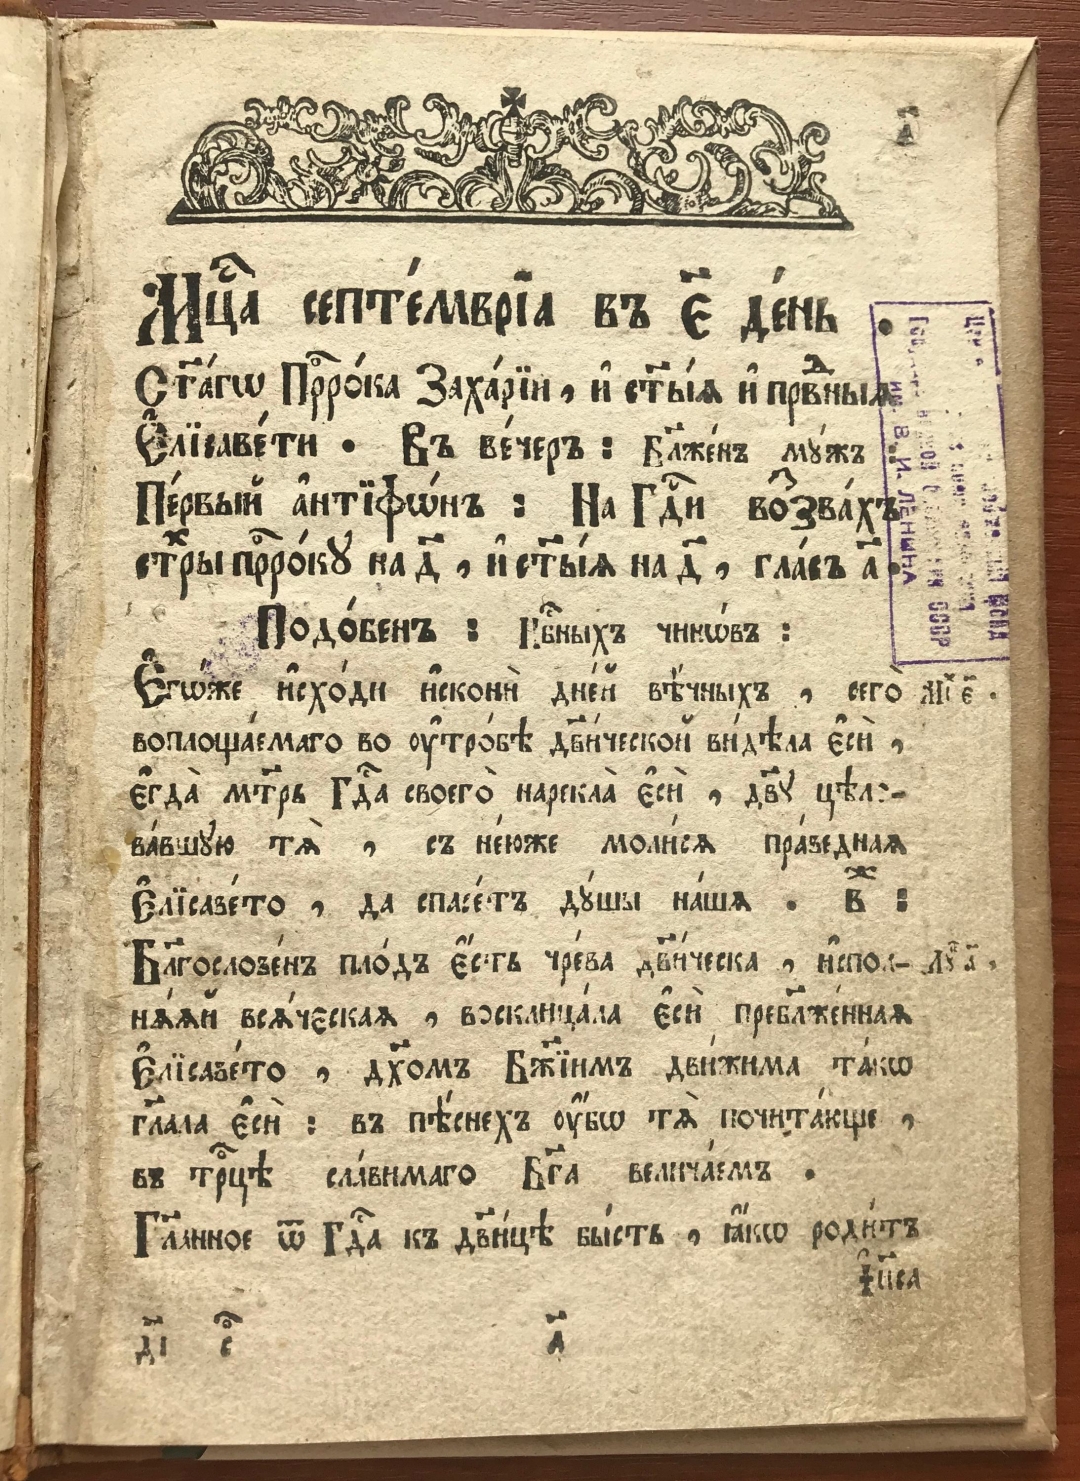 а҃
Мц҇а септе́мврі̑а въ є҃ де́нь
Ст҃а́гѡ Прⷪ҇ро́ка Заха́рїи, и҆ ст҃ы́ѧ и҆ првⷣныѧ
Є҆лїсаве́ти. Въ ве́черъ: Бл҃же́нъ му́жъ.
Пе́рвый а҆нтїфѡ́нъ: На Гдⷭ҇и воⷥзва́хъ
стⷯры прⷪ҇ро́ку на д҃, и҆ ст҃ы́ѧ на д҃, гла́съ а҃.
Подо́бенъ: Нбⷭ҇ныхъ чинѡ́въ:
Є҆гѡ́же и҆схо́ди и҆сконѝ дне́й вѣ́чныхъ, сего̀
Мїⷯ є҃.
воплоща́емаго во ᲂу҆тро́бѣ дв҃и́ческой ви́дѣла є҆сѝ,
є҆гда̀ мт҃рь Гдⷭ҇а своего̀ нарекла̀ є҆сѝ, дв҃у цѣло-
ва́вшую тѧ̀, съ не́юже моли́сѧ пра́ведная
Є҆лїсаве́то, да спасе́тъ ду́шы на́шѧ. вⷤ҃:
Бл҃гослове́нъ пло́дъ є҆́сть чре́ва дв҃и́ческа, и҆спол-
Луⷦ҇ а҃,
нѧ́ѧй всѧ́ческая, восклица́ла є҆сѝ пребл҃же́нная
Є҆лїсаве́то, дх҃омъ Бж҃їимъ дви́жима та́кѡ
гл҃ала є҆сѝ: въ пѣ́снехъ ᲂу҆́бѡ тѧ̀ почита́юще,
въ трⷪ҇цѣ сла́вимаго Бг҃а велича́емъ.
Гл҃анное ѿ Гдⷭ҇а къ дв҃и́цѣ бы́сть, ꙗ҆́кѡ роди́тъ
І҆и҃са
д҃і сⷪ҇ а҃
Госуд
им. В. И. ЛЕНИНА
СССР